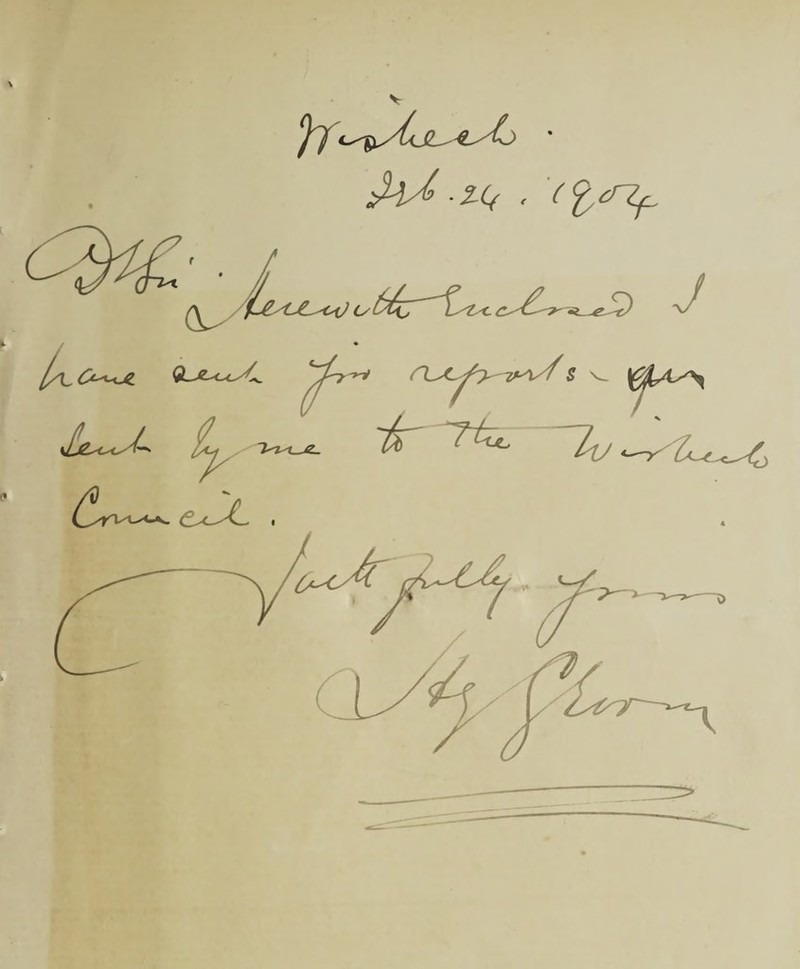 Wisbech.
Feb. 24. 1904
D Sir.
Herewith Enclosed I
have sent you reports
sent by me to the Wisbech
Council.
Faithfully yours